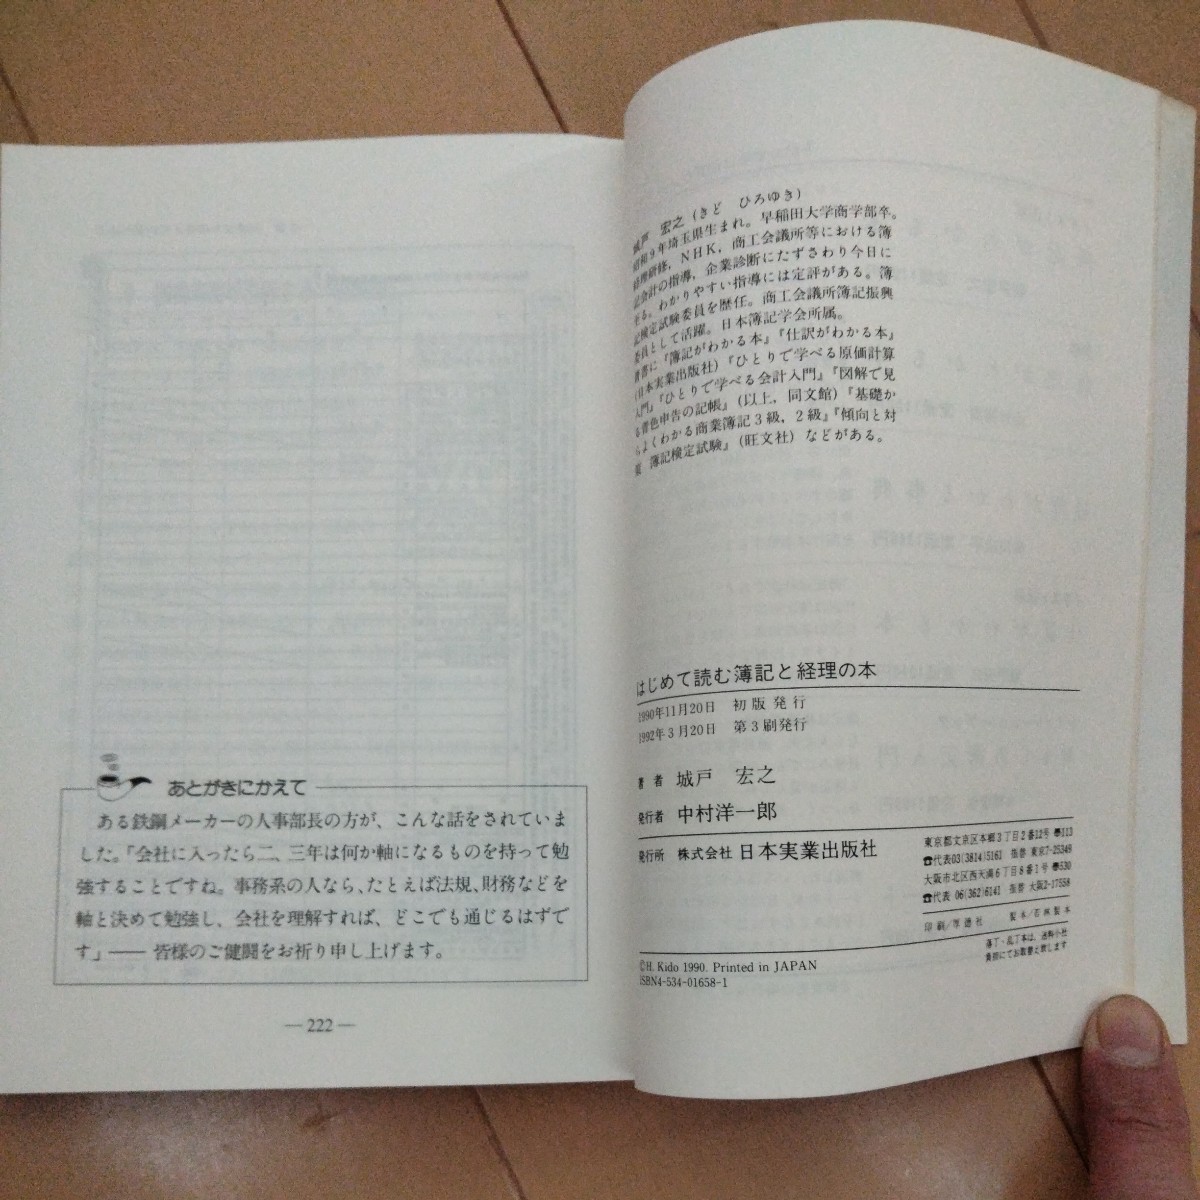 あとがきにかえて
ある鉄鋼メーカーの人事部長の方が、こんな話をされていま
した。「会社に入ったら二、三年は何か軸になるものを持って勉
強することですね。事務系の人なら、たとえば法規、財務などを
軸と決めて勉強し、会社を理解すれば、どこでも通じるはずで
す」―― 皆様のご健闘をお祈り申し上げます。
― 222 ―
城戸 宏之(きど ひろゆき)
昭和9年埼玉県生まれ。早稲田大学商学部卒。
経理研修,NHK,商工会議所等における簿
記会計の指導,企業診断にたずさわり今日に
至る。わかりやすい指導には定評がある。簿
記検定試験委員を歴任。商工会議所簿記振興
委員として活躍。日本簿記学会所属。
著書に『簿記がわかる本』『仕訳がわかる本』
(日本実業出版社)『ひとりで学べる原価計算
入門』『ひとりで学べる会計入門』『図解で見
る青色申告の記帳』(以上,同文館)『基礎か
らよくわかる商業簿記3級,2級』『傾向と対
策 簿記検定試験』(旺文社)などがある。
はじめて読む簿記と経理の本
1990年11月20日 初版発行
1992年3月20日 第3刷発行
著者 城戸 宏之
発行者 中村洋一郎
発行所 株式会社 日本実業出版社
東京都文京区本郷3丁目2番12号 〒113
☎代表03(3814)5161 振替 東京7-25349
大阪市北区西天満6丁目8番1号 〒530
☎代表 06(362)6141 振替 大阪2-17558
印刷/厚徳社 製本/若林製本
落丁・乱丁本は、送料小社
負担にてお取替え致します
©H. Kido 1990. Printed in JAPAN
ISBN4-534-01658-1